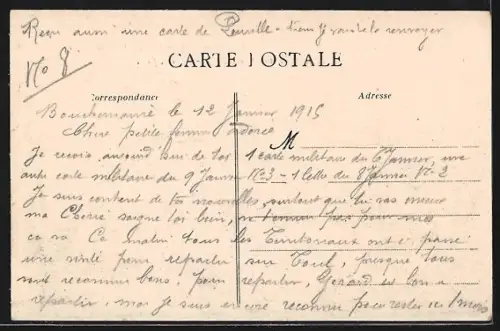 Reçu aussi une carte de Leuville
renvoyer
No 8
CARTE POSTALE
Correspondance
Adresse
le 12 Janvier 1915
Chère petite femme adorée
M
Je reçois aujourd'hui de toi 1 carte militaire du 6 Janvier, une
autre carte militaire du 9 Janvier No 3 - 1 lettre du 8 Janvier No 2
Je suis content de tes nouvelles, surtout que tu vas mieux
ma Chérie soigne toi bien, ne pas pour moi
ça va Ce matin tous les Territoriaux ont passé
une visite pour repartir sur Toul, presque tous
sont reconnus bons, pour repartir, Gérard est bon a
repartir, moi je suis encore reconnu pour rester ici 1 mois